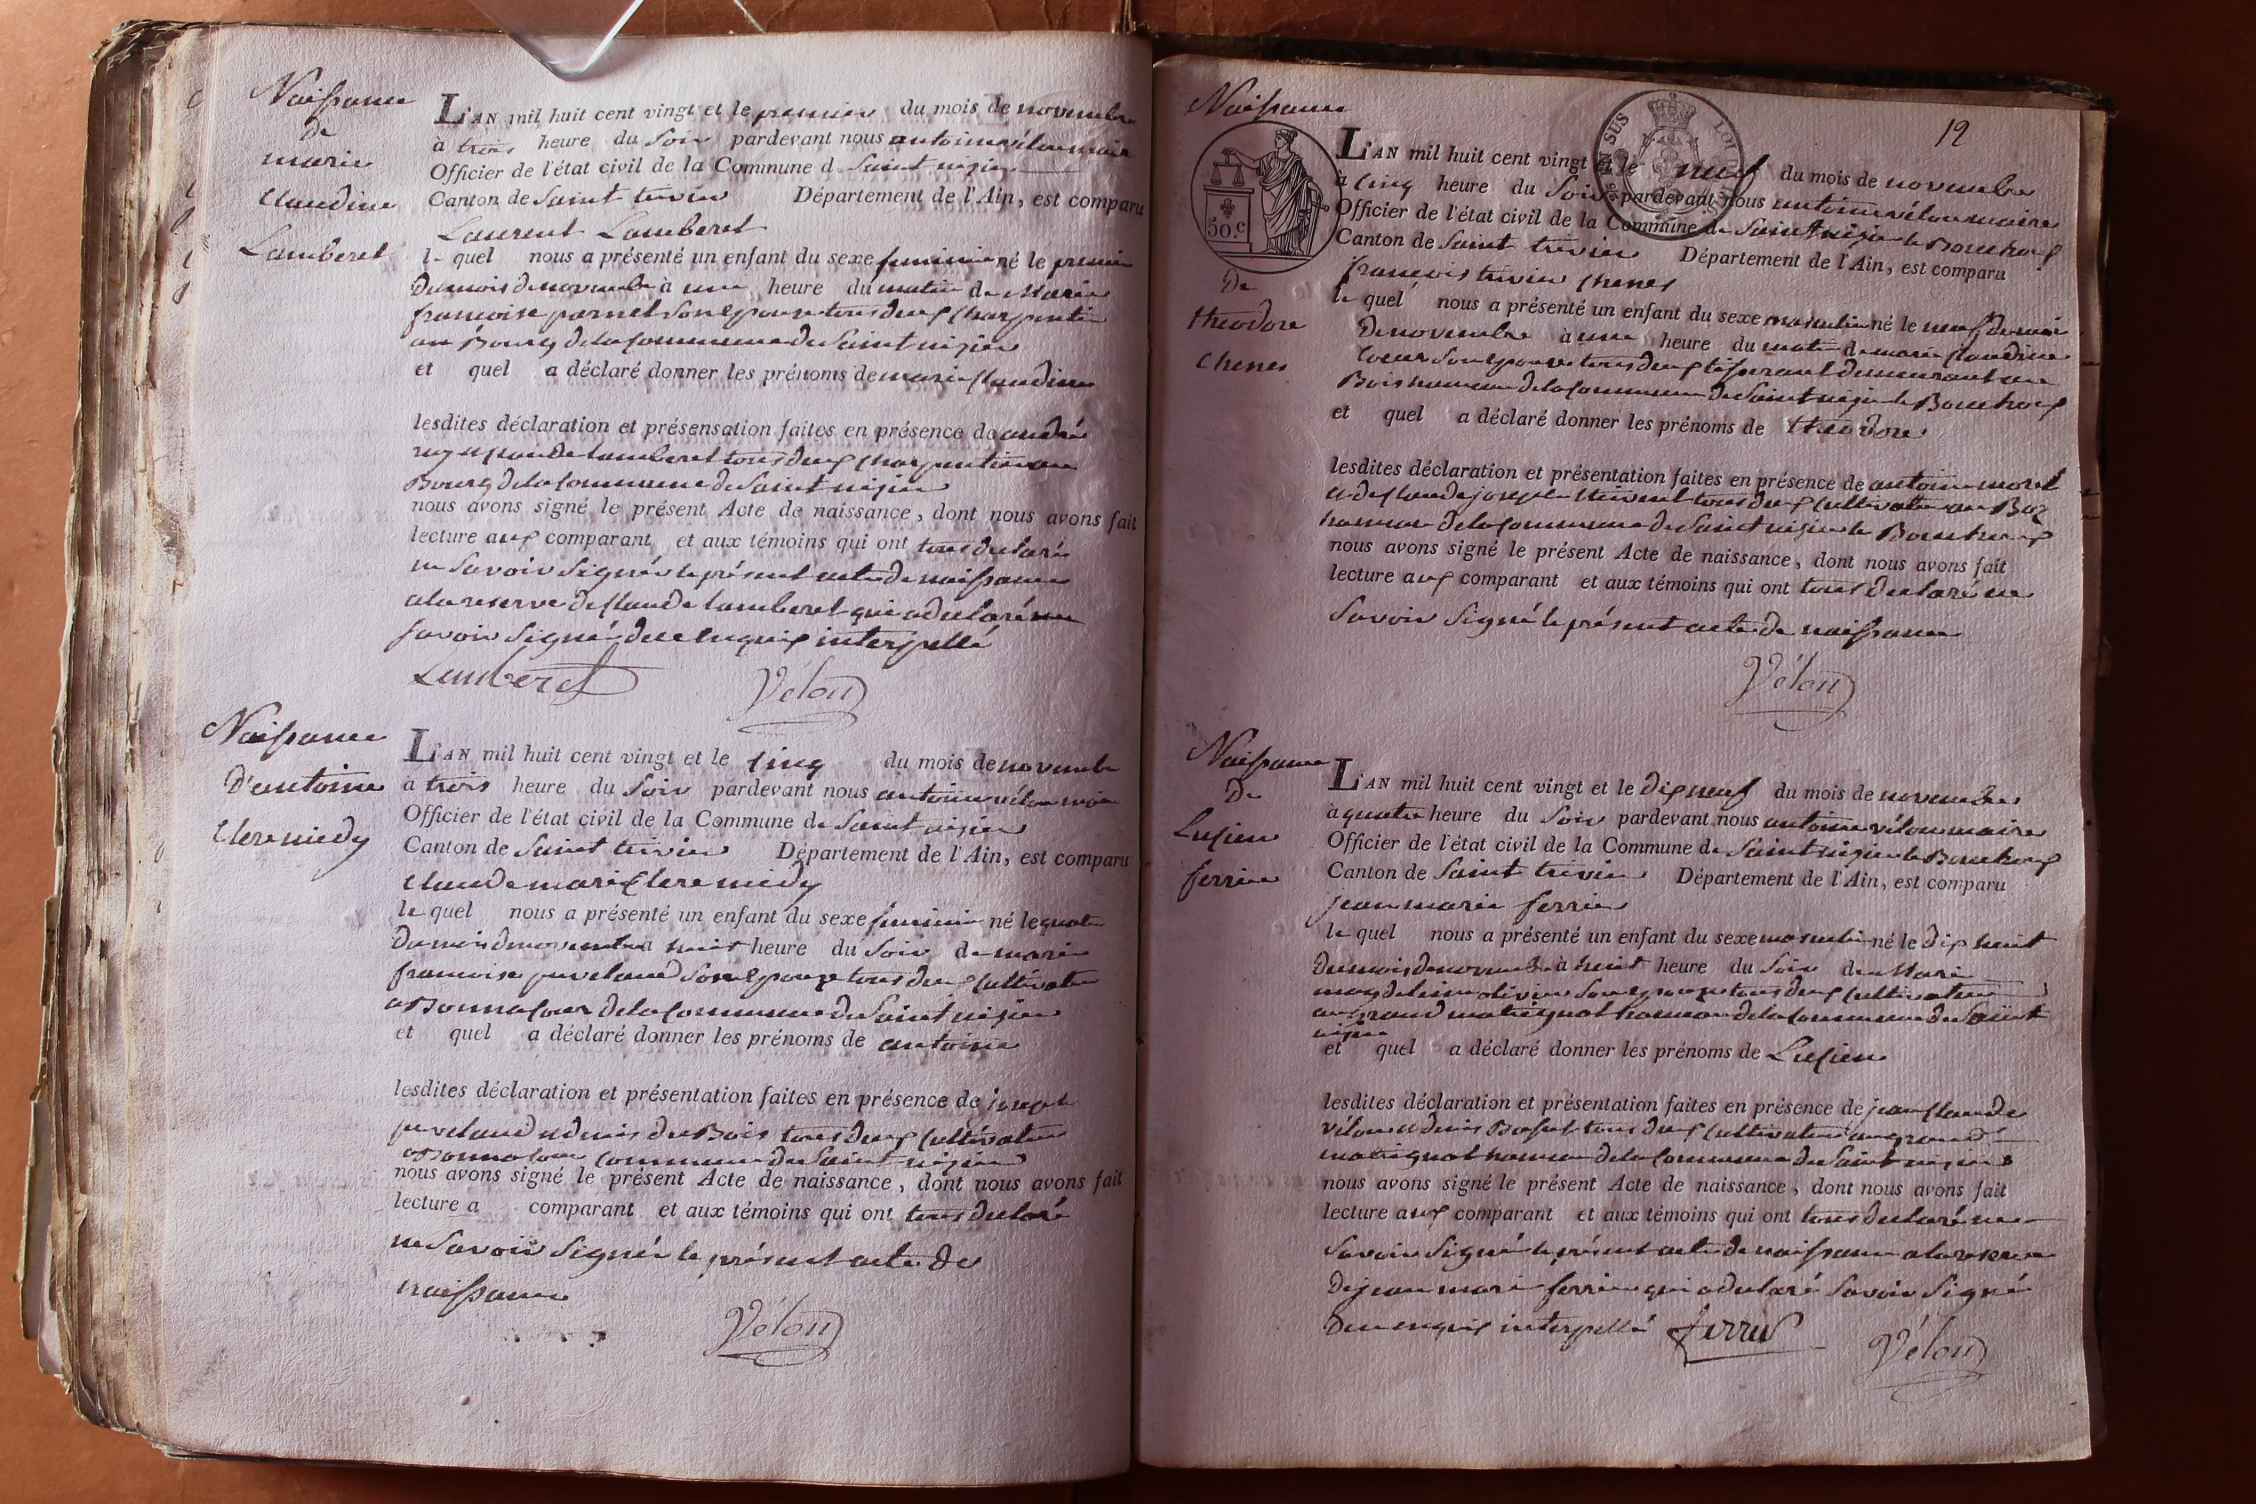 Naissance
de
marie
Claudine
Lamberet
L'AN mil huit cent vingt et le premier du mois de novembre
à trois heure du Soir pardevant nous antoine vélon maire
Officier de l'état civil de la Commune d Saint nizier
Canton de Saint trivier Département de l'Ain, est comparu
Laurent Lamberet
le quel nous a présenté un enfant du sexe feminin né le premier
du mois de novembre à une heure du matin de Marie
francoise pornet Son epouse tous deux Charpentier
au Bourg de la Commune de Saint nizier
et quel a déclaré donner les prénoms de marie Claudine
lesdites déclaration et présensation faites en présence de andré
Claude Lamberet tous deux Charpentier au
Bourg de la Commune de Saint nizier
nous avons signé le présent Acte de naissance, dont nous avons fait
lecture aux comparant et aux témoins qui ont tous declaré
ne Savoir Signér le présent acte de naissance
a la reserve de Claude Lamberet qui a declaré
Savoir Signér de ce enquis interpellé
Lamberet Vélon
Naissance
D'antoine
Clere midy
L'AN mil huit cent vingt et le Cinq du mois de novembre
à trois heure du Soir pardevant nous antoine vélon maire
Officier de l'état civil de la Commune de Saint nizier
Canton de Saint trivier Département de l'Ain, est comparu
Claude marie Clere midy
le quel nous a présenté un enfant du sexe feminin né le quatre
du mois de novembre à huit heure du Soir de marie
francoise Son epouse tous deux Cultivateur
a Bonnacour de la Commune de Saint nizier
et quel a déclaré donner les prénoms de antoine
lesdites déclaration et présentation faites en présence de joseph
et denis du Bois tous deux Cultivateur
a Bonnacour Commune de Saint nizier
nous avons signé le présent Acte de naissance, dont nous avons fait
lecture a comparant et aux témoins qui ont tous declaré
ne Savoir Signér le présent acte de
naissance
Vélon
12
Naissance
50.c
De
theodore
Chenes
L'AN mil huit cent vingt et le neuf du mois de novembre
à Cinq heure du Soir pardevant nous antoine vélon maire
Officier de l'état civil de la Commune de Saint nizier le Bouchoux
Canton de Saint trivier Département de l'Ain, est comparu
francois trivier Chenes
le quel nous a présenté un enfant du sexe masculin né le neuf du moi
De novembre à une heure du matin de marie Claudine
Coeur Son epouse tous deux tisserant demeurant au
Bois hameau de la Commune de Saint nizier le Bouchoux
et quel a déclaré donner les prénoms de theodore
lesdites déclaration et présentation faites en présence de antoine morel
et de Claude joseph tous deux Cultivateur au
hameau de la Commune de Saint nizier le Bouchoux
nous avons signé le présent Acte de naissance, dont nous avons fait
lecture aux comparant et aux témoins qui ont tous declaré ne
Savoir Signé le présent acte de naissance
Vélon
Naissance
De
Lucien
ferrier
L'AN mil huit cent vingt et le dix neuf du mois de novembre
à quatre heure du Soir pardevant nous antoine vélon maire
Officier de l'état civil de la Commune de Saint nizier le Bouchoux
Canton de Saint trivier Département de l'Ain, est comparu
jean marie ferrier
le quel nous a présenté un enfant du sexe masculin né le dix huit
du mois de novembre à huit heure du Soir de Marie
magdelaine olivier Son epouse tous deux Cultivateur
au grand matrignat hameau de la Commune de Saint
nizier
et quel a déclaré donner les prénoms de Lucien
lesdites déclaration et présentation faites en présence de jean Claude
vélon et denis tous deux Cultivateur au grand
matrignat hameau de la Commune de Saint nizier
nous avons signé le présent Acte de naissance, dont nous avons fait
lecture aux comparant et aux témoins qui ont tous declaré ne
Savoir Signé le présent acte de naissance a la reserve
De jean marie ferrier qui a declaré Savoir Signé
De ce enquis interpellé ferrier Vélon